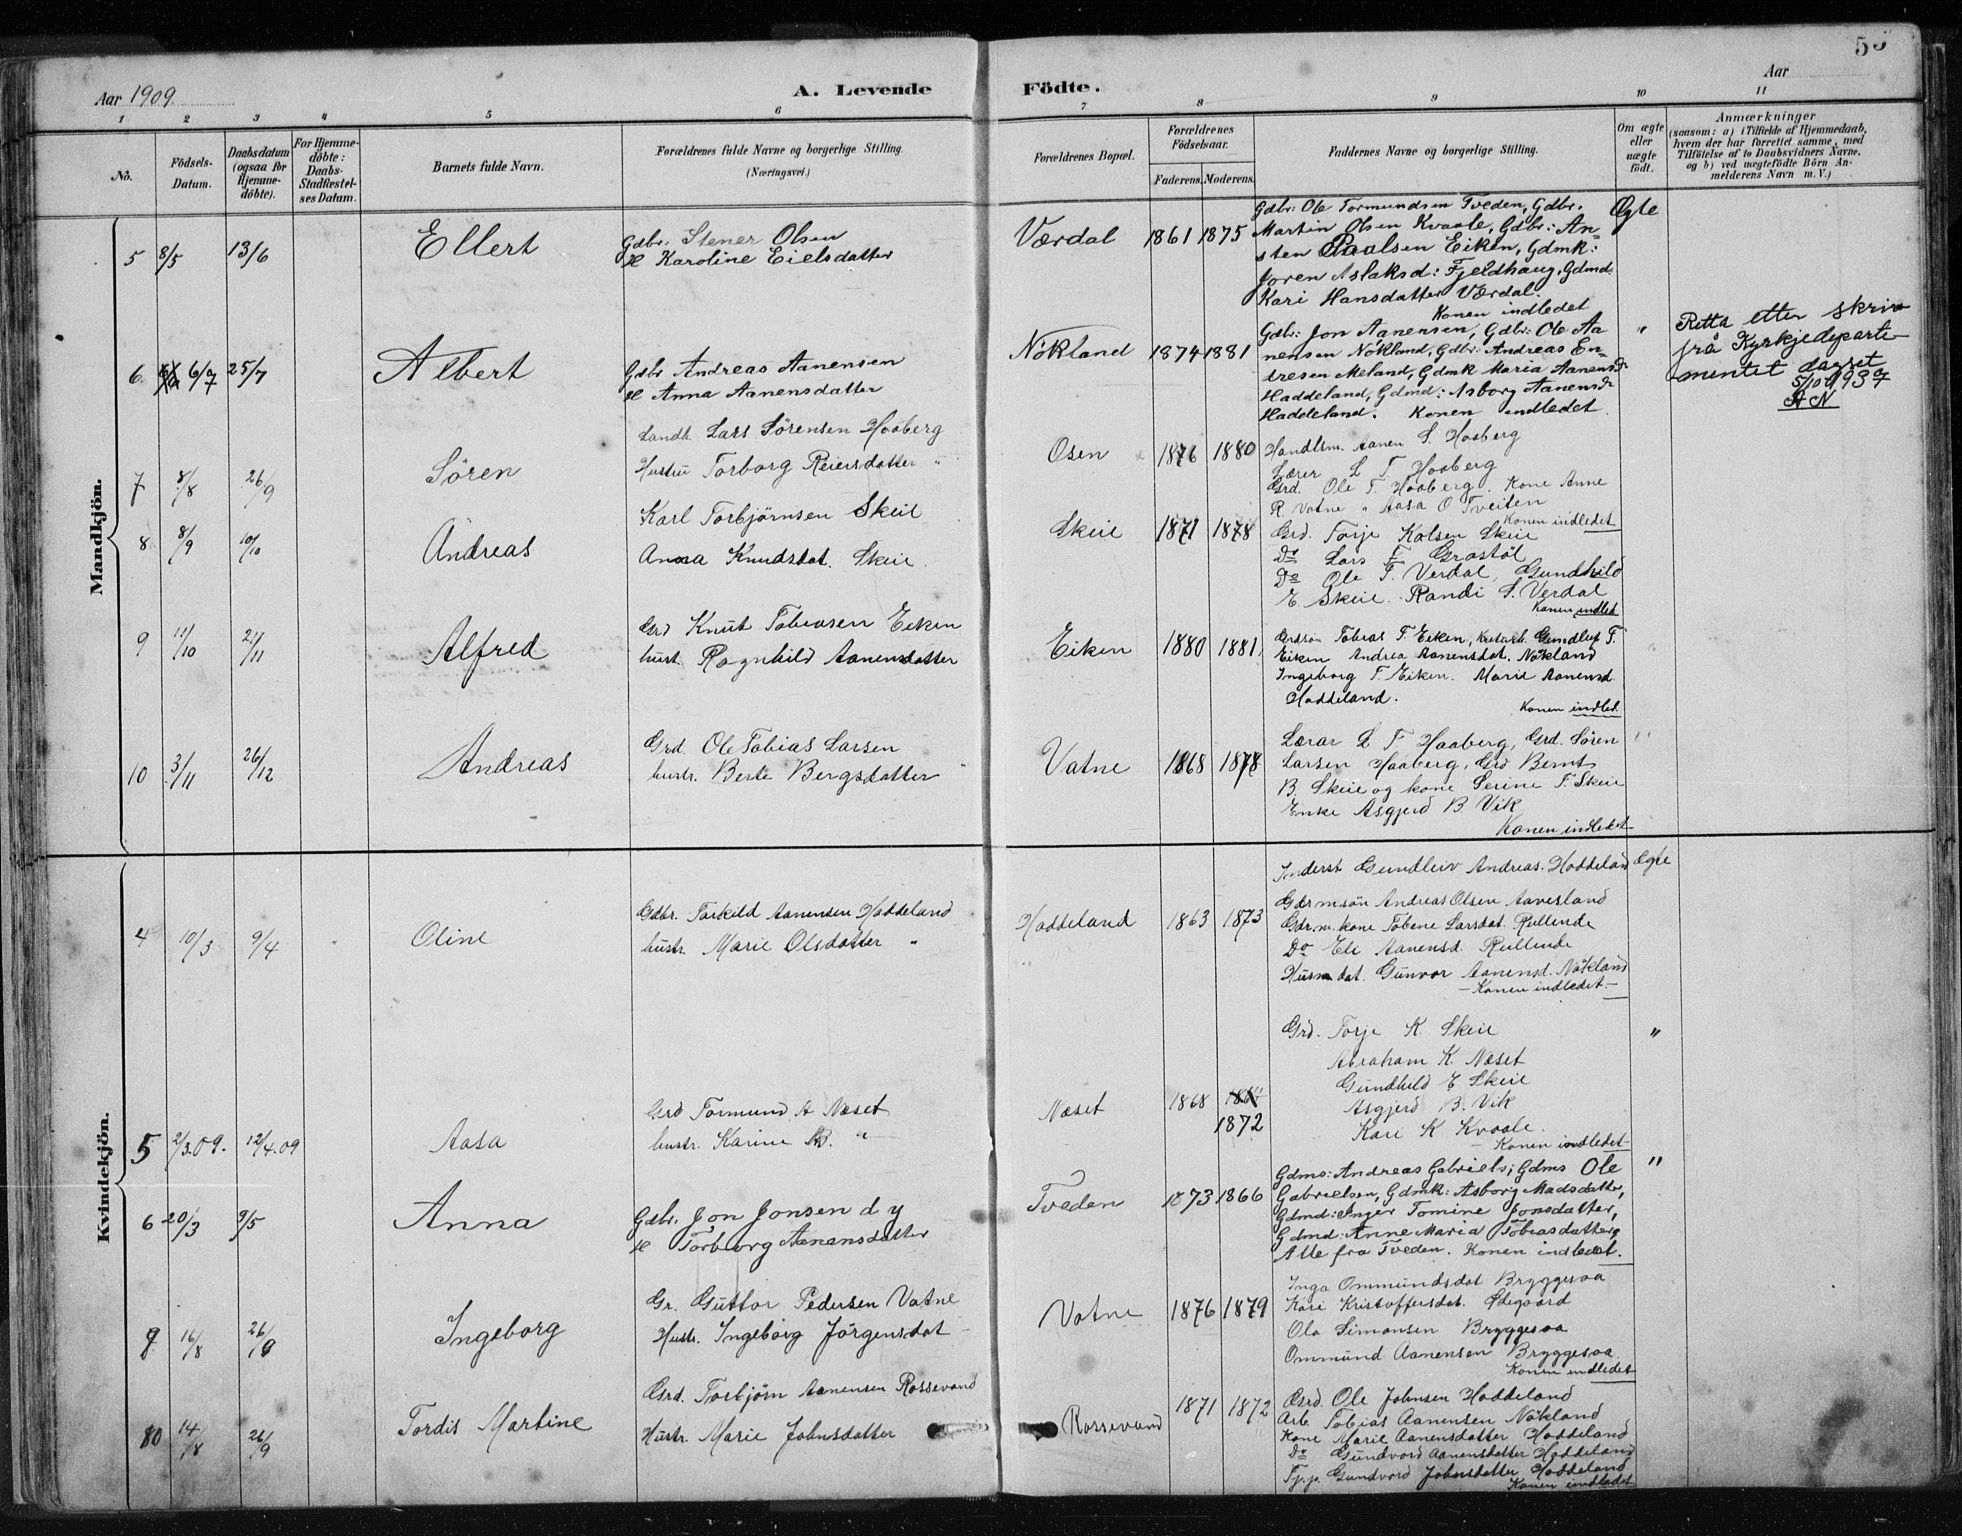 55
Aar 1909
A. Levende Födte.
Aar
1 2 3 4 5 6 7 8 9 10 11
No.
Födsels-Datum.
Daabsdatum (ogsaa for Hjemmedöbte).
For Hjemmedöbte: Daabs-Stadfæstelses Datum.
Barnets fulde Navn.
Forældrenes fulde Navne og borgerlige Stilling. (Næringsvei.)
Forældrenes Bopæl.
Forældrenes Födselsaar.
Faderens. Moderens.
Faddernes Navne og borgerlige Stilling.
Om ægte eller uægte födt.
Anmærkninger
(saasom: a) i Tilfælde af Hjemmedaab, hvem der har forrettet samme, med Tilföielse af to Daabsvidners Navne. og b) ved uægtefödte Börn Anmelderens Navn m. V.)
Mandkjön.
5 8/5 13/6 Ellert
Gdbr. Stener Olsen
H Karoline Eielsdatter
Værdal 1861 1875
Gdbr: Ole Tormundsen Tveden, Gdbr.
Martin Olsen Kvaale, Gdbr: An-
sten Paalsen Eiken, Gdmk:
Joren Aslaksd: Fjeldhaug, Gdmd.
Kari Hansdatter Værdal.
Konen indledet
Ægte
6 6/7 25/7 Albert
Gdbr Andreas Aanensen
H Anna Aanensdatter
Nökland 1874 1881
Gdbr: Jon Aanensen, Gdbr: Ole Aa
nensen Nökland, Gdbr: Andreas En-
dresen Meland, Gdmk Maria Aanensdr
Haddeland, Gdmd: Asborg Aanensdr
Haddeland. Konen indledet
"
Retta etter skriv
frå Kyrkjedeparte
mentet dagset
5/10 1937
AN
7 8/8 26/9 Sören
Landh. Lars Sörensen Haaberg
Hustru Torborg Reiersdatter "
Osen 1876 1880
Handlsm. Aanen S. Haaberg
Lærer L T Haaberg
Grd. Ole T. Haaberg. Kone Anne
R. Vatne " Aasa O Tveiten
Konen indledet
8 8/9 10/10 Andreas
Karl Torbjörnsen Skeie
Anna Knudsdat. Skeie
Skeie 1871 1878
Grd. Torje Kolsen Skeie
Do Lars T Grastöl
Do Ole T. Verdal, Gundhild
E. Skeie. Randi S. Verdal
Konen indled
9 11/10 21/11 Alfred
Grd Knut Tobiasen Eiken
hust. Ragnhild Aanensdatter
Eiken 1880 1881
Grdsön Tobias T. Eiken, Gundleif T.
Eiken Andrea Aanensdat. Nökland
Ingeborg T. Eiken. Marie Aanensd
Haddeland.
Konen indled.
10 3/11 26/12 Andreas
Grd. Ole Tobias Larsen
hustr. Berte Bergsdatter
Vatne 1868 1878
Lærar L T Haaberg, Grd. Sören
Larsen Haaberg, Grd Bernt
B. Skeie og kone Serine T. Skeie
Enke Asgjerd B. Vik
Konen indledet
"
Kvindekjön.
4 10/3 9/4 Oline
Gdbr. Torkild Aanensen Haddeland
hustr. Marie Olsdatter "
Haddeland 1863 1873
Inderst Gundleiv Andreas. Haddeland
Gdrmsön Andreas Olsen Aavesland
Gdr.m. kone Tobene Larsdat. Rullende
Do Eli Aanensd. Rullende
Husm dat. Gunvor Aanensd. Nökland
- Konen indledet -
Ægte
5 2/3.09. 12/4.09 Aasa
Grd Tormund A Næset
hustr. Karine B. "
Næset 1868 1872
Grd. Torje K. Skeie
Abraham K. Næset
Gundhild E Skeie
Asgjerd B. Vik
Kari K Kvaale.
- Konen indledet -
"
6 20/3 9/5 Anna
Gdbr. Jon Jonsen d y
H Torborg Aanansdatter
Tveden 1873 1866
Gdms: Andreas Gabriels; Gdms Ole
Gabrielsen, Gdmk: Asborg Madsdatter,
Gdmd: Inger Tomine Jonsdatter,
Gdmd: Anne Maria Tobiasdatter
Alle fra Tveden. Konen indledet.
"
16/8 26/9 Ingeborg
Gr. Guttor Pedersen Vatne
Hustr. Ingeborg Jörgensdat
Vatne 1876 1879
Inga Ommundsdat Bryggesaa
Kari Kristoffersdat. Ødegaard
Ola Simonsen Bryggesaa
Ommund Aanensen Bryggesaa
Konen indledet
14/8 26/9 Tordis Martine
Grd. Torbjörn Aanensen Rossevand
Hustr. Marie Johnsdatter
Rossevand 1871 1872
Grd. Ole Johnsen Haddeland
Arb Tobias Aanensen Nökland
Kone Marie Aanensdatter Haddeland
Do Gundvord Aanensdatter Haddeland
Tj.p. Gundvord Johnsdatter Haddeland
Konen indledet